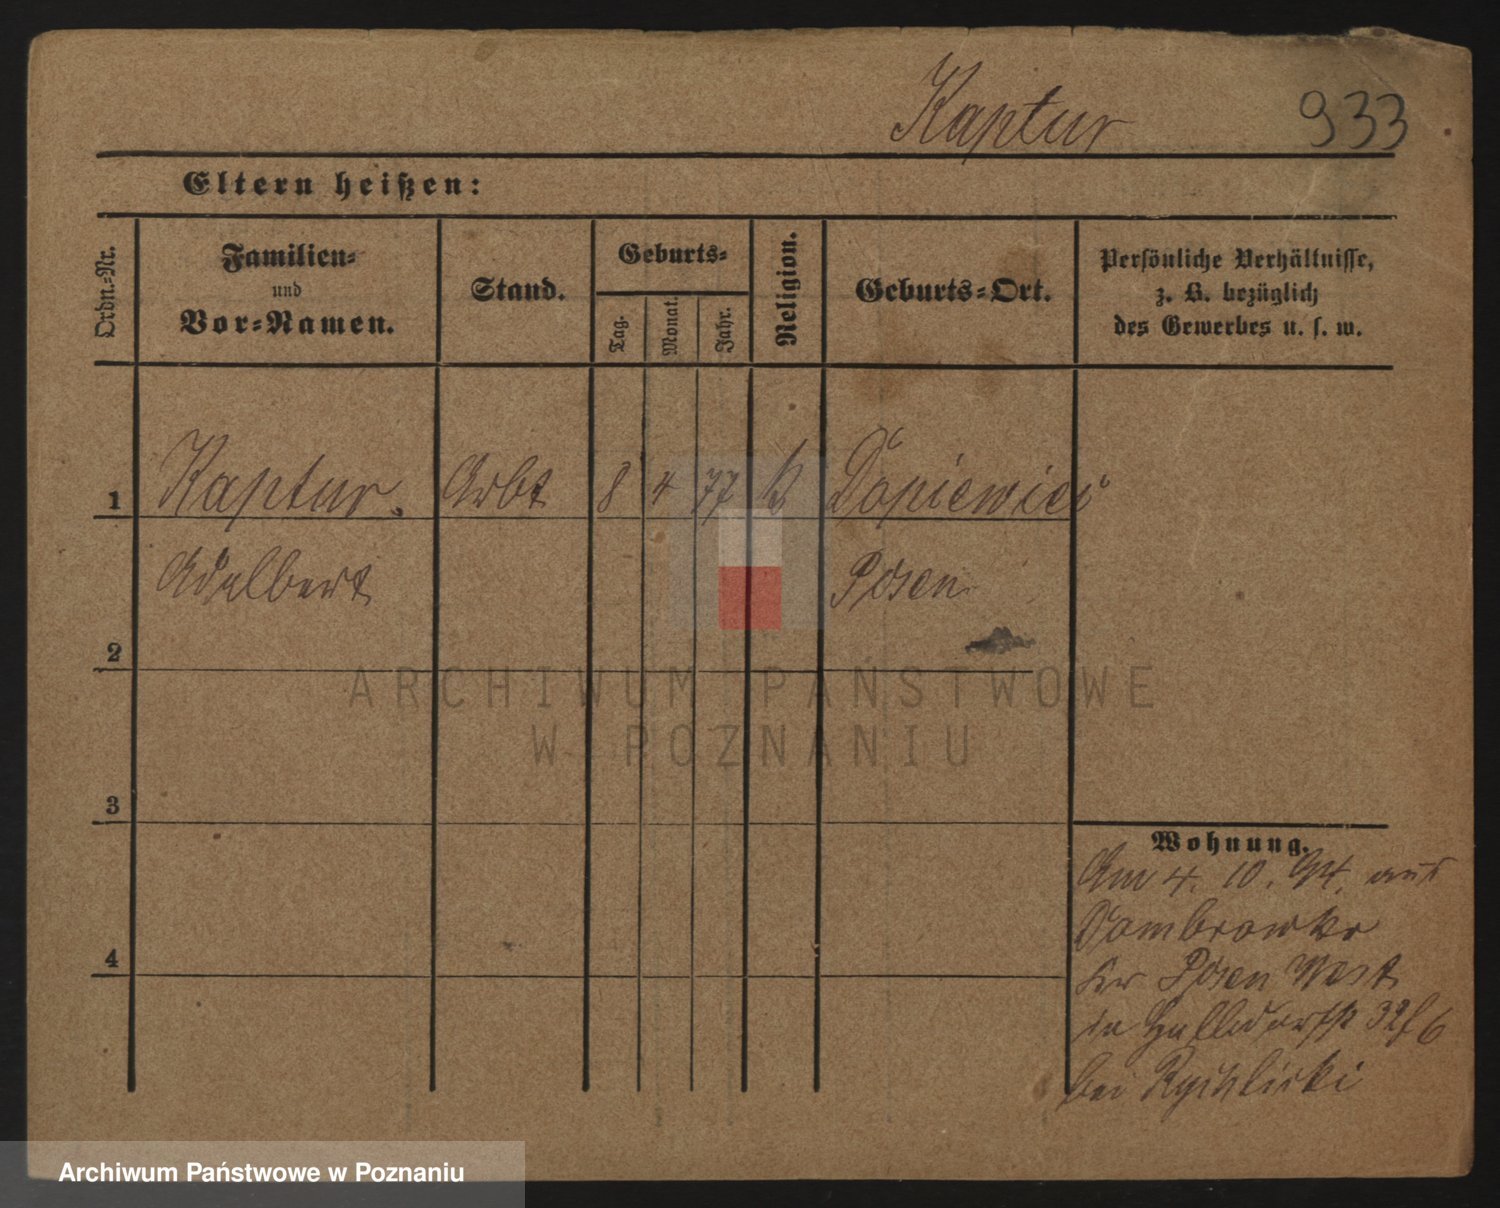 Kaptur 933
Eltern heißen:
Ordn.-Nr.
Familien-
und
Vor-Namen.
Stand.
Geburts-
Tag.
Monat.
Jahr.
Religion.
Geburts-Ort.
Persönliche Verhältnisse,
z. B. bezüglich
des Gewerbes u. s. w.
1 Kaptur. Arbt 8 4 77 k Dopiewiec
Adalbert Posen
2
3
4
Wohnung.
Am 4. 10. 94. aus
Dombrowka
Kr Posen West
in 32 6
bei Rychlicki
ARCHIWUM PAŃSTWOWE
W POZNANIU
Archiwum Państwowe w Poznaniu